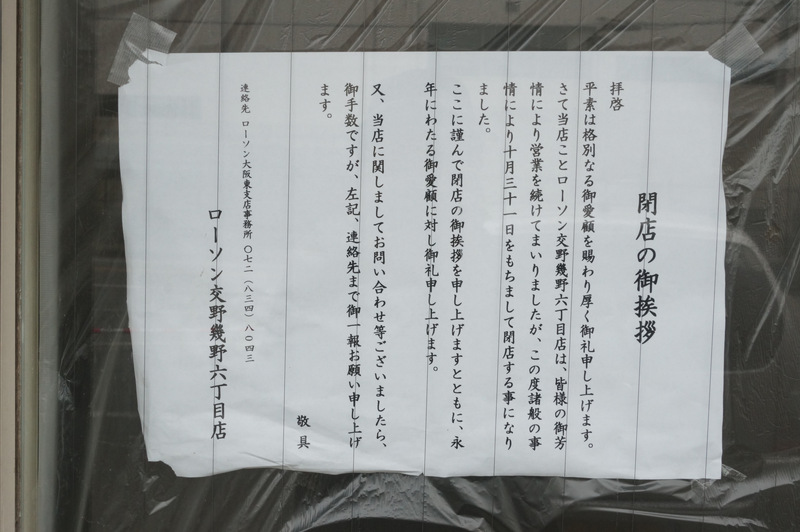 閉店の御挨拶
拝啓
平素は格別なる御愛顧を賜わり厚く御礼申し上げます。
さて当店ことローソン交野幾野六丁目店は、皆様の御芳
情により営業を続けてまいりましたが、この度諸般の事
情により十月三十一日をもちまして閉店する事になり
ました。
ここに謹んで閉店の御挨拶を申し上げますとともに、永
年にわたる御愛顧に対し御礼申し上げます。
又、当店に関しましてお問い合わせ等ございましたら、
御手数ですが、左記、連絡先まで御一報お願い申し上げ
ます。
敬具
連絡先 ローソン大阪東支店事務所 〇七二（八三四）八〇四三
ローソン交野幾野六丁目店